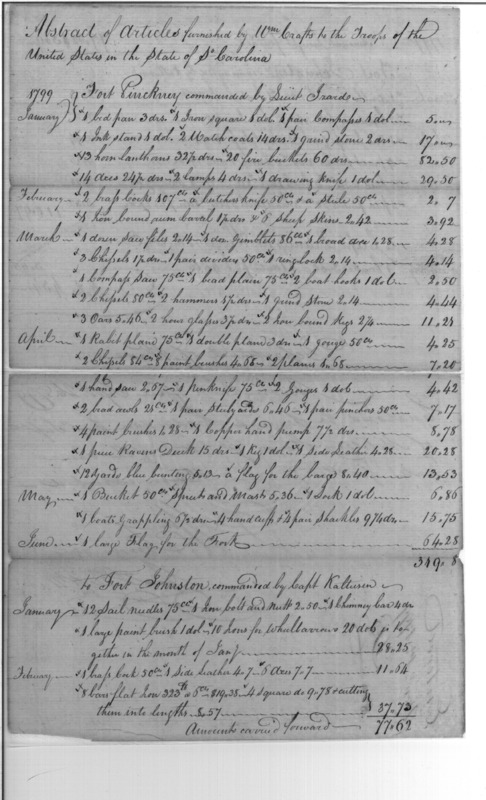 Abstract of Articles furnished by Wm Crafts to the Troops of the
United States in the State of So Carolina
1799 Fort Pinckney commanded by Lieut
January 1 bed pan 3 drs. 1 Iron square 1 dol. 1 pair Compasses 1 dol. 5
1 Ink stand 1 dol. 2 Watch coats 14 drs. 1 grind stone 2 drs 17
13 horn lanthorns 32½ drs 20 fire buckets 60 drs 82.50
14 axes 24½ drs 2 lamps 4 drs 1 drawing knife 1 dol 29.50
February 2 brass cocks 107 cts a butchers knife 50 cts & a Stele 50 cts 2.7
1 Iron bound rum barrel 1½ drs & 6 Sheep Skins 2.42 3.92
March 1 dozen saw files 2.14 1 doz Gimblets 86 cts 1 broad axe 1.28 4.28
3 Chissels 1½ drs 1 pair dividers 50 cts 1 ring lock 2.14 4.14
1 Compass Saw 75 cts 1 bead plain 75 cts 2 boat hooks 1 dol 2.50
2 Chissels 50 cts 2 hammers 5½ drs 1 grind Stone 2.14 4.44
3 Oars 5.46 2 hour glasses 3½ drs 2 Iron bound Kegs 2¼ 11.21
April 1 Rabit plane 75 cts 1 double plane 3 drs 1 gouge 50 cts 4.25
2 Chissels 84 cts 8 paint brushes 4.68 2 plains 1.68 7.20
1 hand saw 2.67 1 penknife 75 cts 2 Gouges 1 dol 4.42
2 brad awls 21 cts 1 pair Steelyards 6.46 1 pair pinchers 50 cts 7.17
4 paint brushes 1.28 1 Copper hand pump 7½ drs 8.78
1 piece Ravens Duck 15 drs 1 Keg 1 dol 1 Side Leather 4.28 20.28
12 yards blue bunting 5.13 a flag for the barge 8.40 13.53
May 1 Bucket 50 cts Spreets and Masts 5.36 1 Lock 1 dol 6.86
1 boats Grappling 5½ drs 4 hand cuffs & 4 pair Shackles 9¾ drs 15.75
June 1 large Flag for the Fort 64.28
349.8
to Fort Johnston commanded by Capt Kalteisen
January 12 Sail needles 75 cts 1 Iron bolt and Nutt 2.50 1 Chimney bar 4 drs
1 large paint brush 1 dol 10 Irons for Whelbarrows 20 dols
gether in the month of Jany 28.25
February 1 brass cock 50 cts 1 Side Leather 4.7 6 Axes 7.7 11.64
8 bars flat Iron 323 lb 6 cts $19.38 4 square do 9.78 & cutting
them into lengths 8.57 $ 37.73
Amount carried forward 77.62